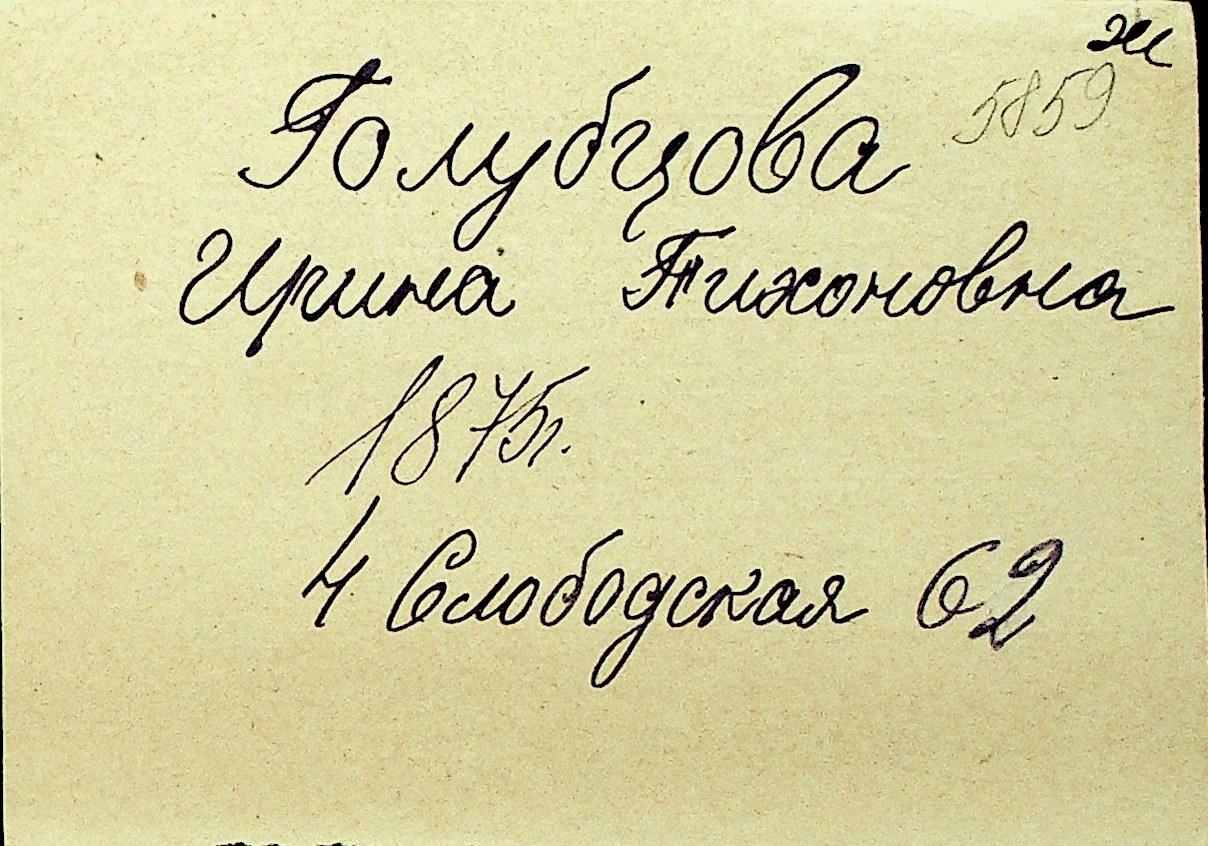 ж
5859
Голубцова
Ирина Тихоновна
1875г.
4 Слободская 62